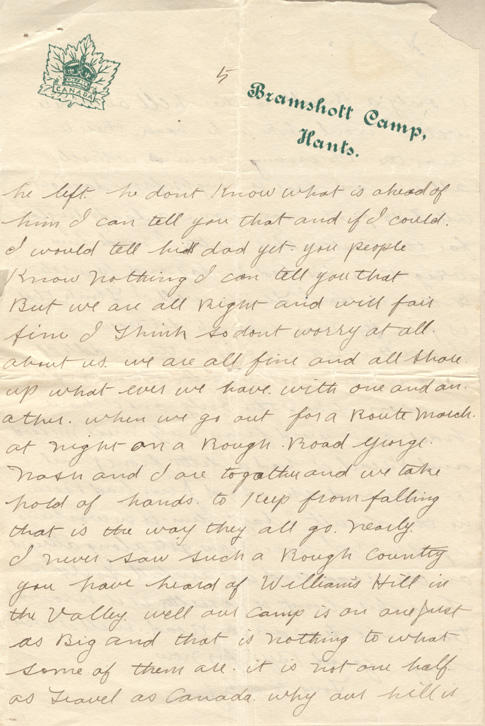 CANADA
5
Bramshott Camp,
Hants.
he left. he dont Know what is ahead of
him I can tell you that and if I could.
I would tell his dad yet you people
Know nothing I can tell you that
But we are all Right and will fair
fine I Think so dont worry at all.
about us. we are all fine and all share
up what ever we have. with one and an-
other. when we go out for a Route March.
at night on a Rough. Road George.
Nash and I are together and we take
hold of hands. to Keep from falling
that is the way they all go. nearly.
I never saw such a Rough Country
you have heard of Williams Hill in
the Valley. well our Camp is on one just
as Big and that is nothing to what
some of them are. it is not one half
as Level as Canada. why our hill is